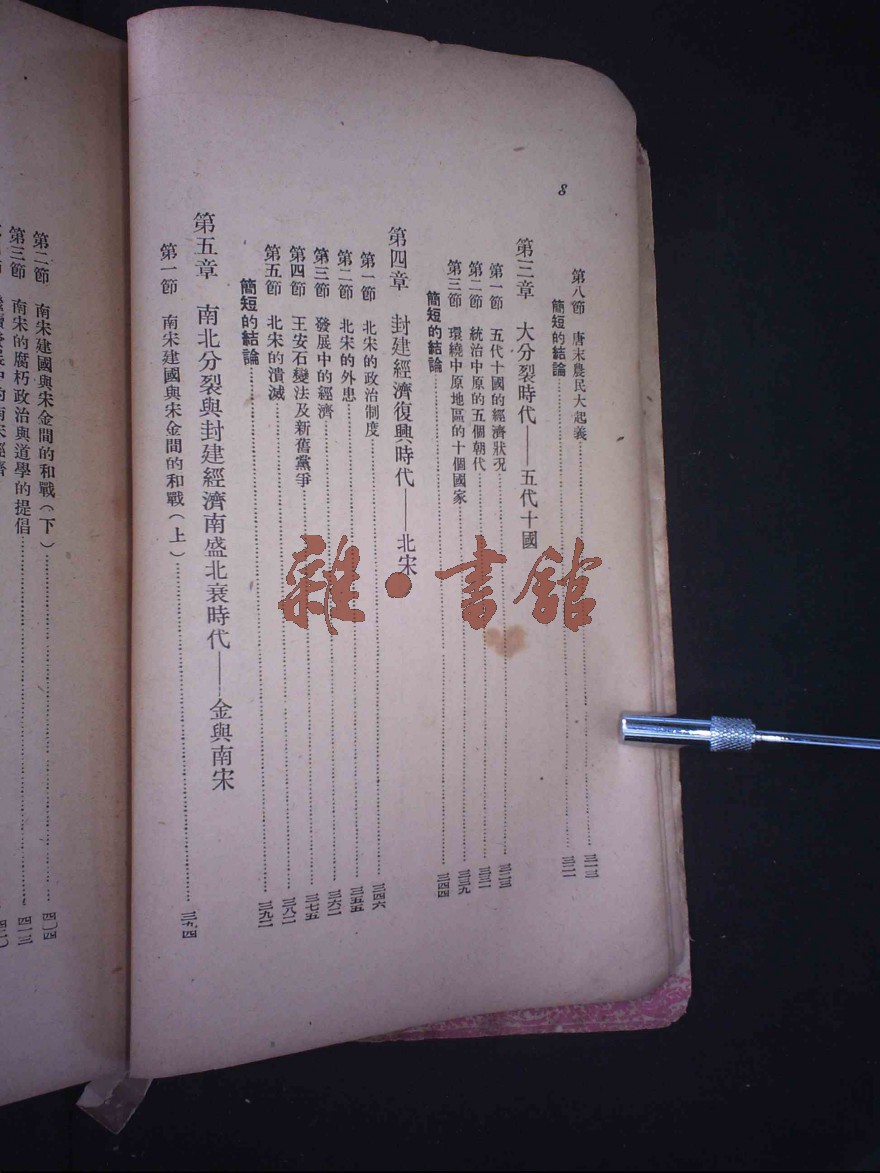 8
第八節 唐末農民大起義……三一三
簡短的結論……三二一
第三章 大分裂時代——五代十國
第一節 五代十國的經濟狀況……三二三
第二節 統治中原的五個朝代……三三一
第三節 環繞中原地區的十個國家……三三九
簡短的結論……三四四
第四章 封建經濟復興時代——北宋
第一節 北宋的政治制度……三四六
第二節 北宋的外患……三五五
第三節 發展中的經濟……三六二
第四節 王安石變法及新舊黨爭……三七五
第五節 北宋的潰滅……三八二
簡短的結論……三九二
第五章 南北分裂與封建經濟南盛北衰時代——金與南宋
第一節 南宋建國與宋金間的和戰(上)……三九四
第二節 南宋建國與宋金間的和戰(下)……四〇四
第三節 南宋的腐朽政治與道學的提倡……四一三
雜·書館